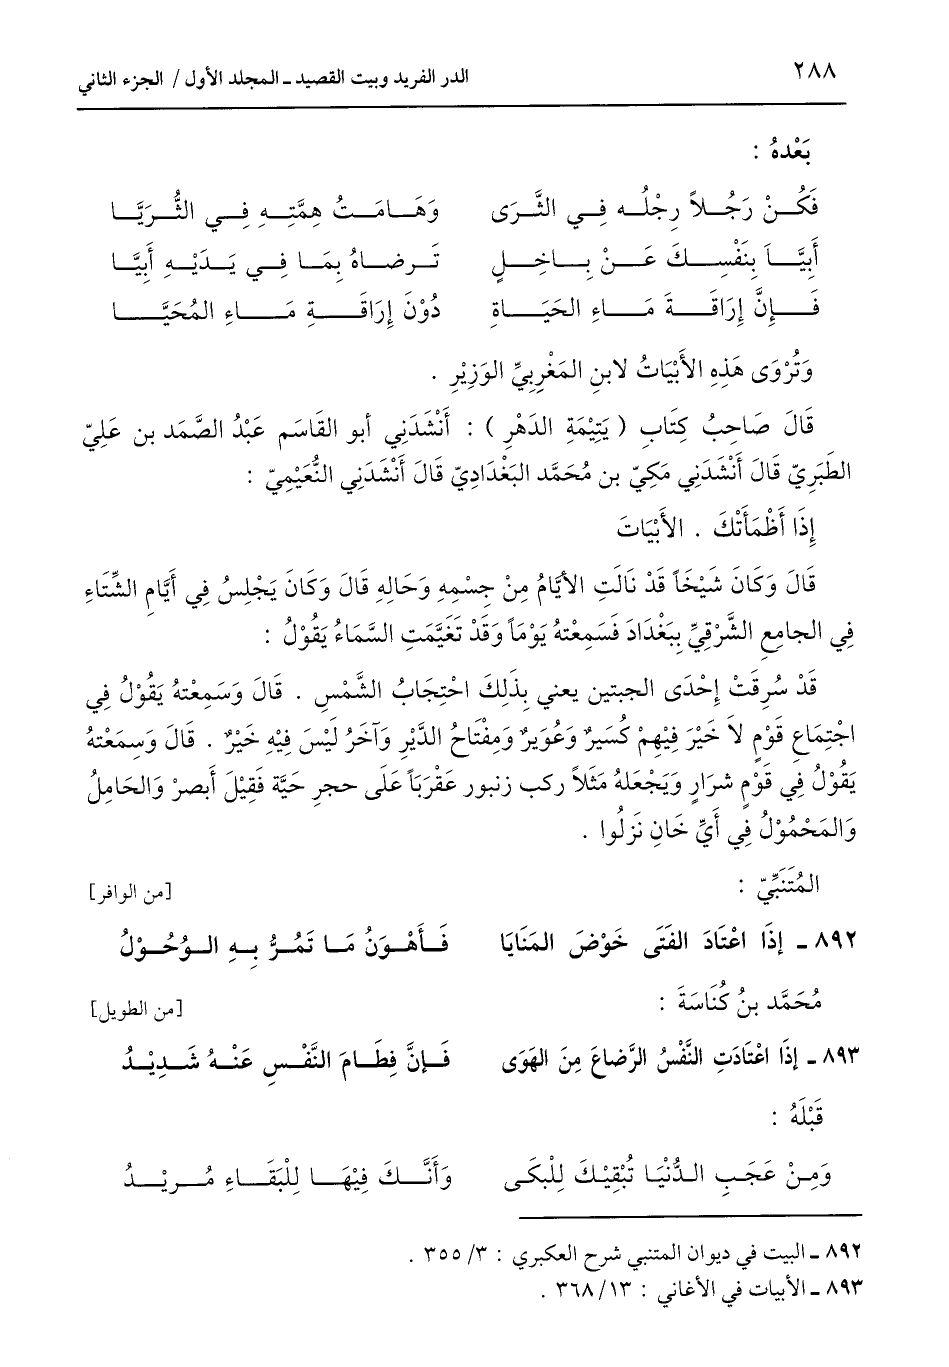 ٢٨٨ الدر الفريد وبيت القصيد ـ المجلد الأول / الجزء الثاني
بَعْدهُ :
فَكُـــنْ رَجُـــلاً رِجْلُـــه فِـــي الثَّرَى وَهَـــامَـــتُ هِمَّتِـــهِ فِـــي الثُّرَيَّـــا
أَبِيَّـــاً بِنَفْسِـــكَ عَـــنْ بـــاخِـــلٍ تَـــرضـــاهُ بِمَـــا فِـــي يَـــدَيْـــهِ أَبِيَّـــا
فَـــإِنَّ إِرَاقَـــةَ مَـــاءِ الحَيَـــاةِ دُوْنَ إِرَاقَـــةِ مَـــاءِ المُحَيَّـــا
وَتُرْوَى هَذِهِ الأَبْيَاتُ لابنِ المَغْرِبِيِّ الوَزِيْرِ .
قَالَ صَاحِبُ كِتَابِ ( يَتِيْمَةِ الدَهْرِ ) : أَنْشَدَنِي أبو القَاسَم عَبْدُ الصَّمَد بن عَلِيّ
الطَبَرِيّ قَالَ أَنْشَدَنِي مَكِيّ بن مُحَمَّد البَغْدَادِيّ قَالَ أَنْشَدَنِي النُّعَيْمِيّ :
إِذَا أَظْمَأَتْكَ . الأَبْيَاتَ
قَالَ وَكَانَ شَيْخَاً قَدْ نَالَتِ الأيَّامُ مِنْ جِسْمِهِ وَحَالِهِ قَالَ وَكَانَ يَجْلِسُ فِي أَيَّامِ الشِّتَاءِ
فِي الجامِعِ الشَّرْقِيِّ بِبَغْدَادَ فَسَمِعْتهُ يَوْمَاً وَقَدْ تَغَيَّمَتِ السَّمَاءُ يَقُوْلُ :
قَدْ سُرِقَتْ إِحْدَى الجبتين يعني بِذَلِكَ احْتِجَابُ الشَّمْسِ . قَالَ وَسَمِعْتهُ يَقُوْلُ فِي
اجْتِمَاعِ قَوْمٍ لاَ خَيْرَ فِيْهِمْ كُسَيرٌ وَعُوَيرٌ وَمِفْتَاحُ الدَّيْرِ وَآخَرُ لَيْسَ فِيْهِ خَيْرٌ . قَالَ وَسَمِعْتهُ
يَقُوْلُ فِي قَوْمٍ شرَارٍ وَيَجْعَلهُ مَثَلاً ركب زنبور عَقْرَبَاً عَلَى حجرِ حَيَّة فَقِيْلَ أَبصرْ وَالحَامِلُ
وَالمَحْمُوْلُ فِي أَيِّ خَانِ نَزلُوا .
المُتَنَبِّيّ : [من الوافر]
٨٩٢ ـ إِذَا اعْتَادَ الفَتَى خَوْضَ المَنَايَا فَـــأَهْـــوَنُ مَـــا تَمُـــرُّ بِـــهِ الـــوُحُـــوْلُ
مُحَمَّد بنُ كُنَاسَةَ : [من الطويل]
٨٩٣ ـ إِذَا اعْتَادَتِ النَّفْسُ الرَّضاعَ مِنَ الهَوَى فَـــإِنَّ فِطَـــامَ النَّفْـــسِ عَنْـــهُ شَـــدِيْـــدُ
قَبْلَهُ :
وَمِـــنْ عَجَـــبِ الـــدُّنْيَـــا تُبْقِيْـــكَ لِلْبَكَـــى وَأَنَّـــكَ فِيْهَـــا لِلْبَقَـــاءِ مُـــرِيْـــدُ
٨٩٢ ـ البيت في ديوان المتنبي شرح العكبري : ٣/ ٣٥٥ .
٨٩٣ ـ الأبيات في الأغاني : ١٣/ ٣٦٨ .